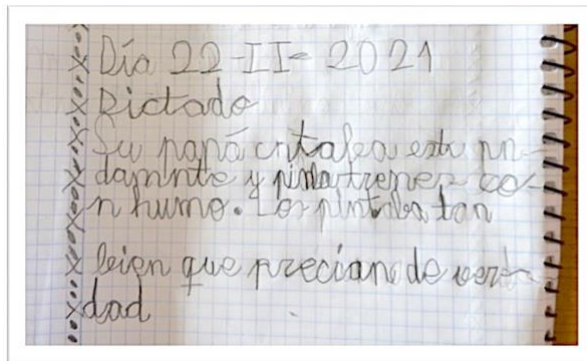 Día 22-II-2021
Dictado
Su papá cntaba estu pn-
damnte y pinta trenes co-
n humo. Los pintaba tan
bien que precian de verda-
dad